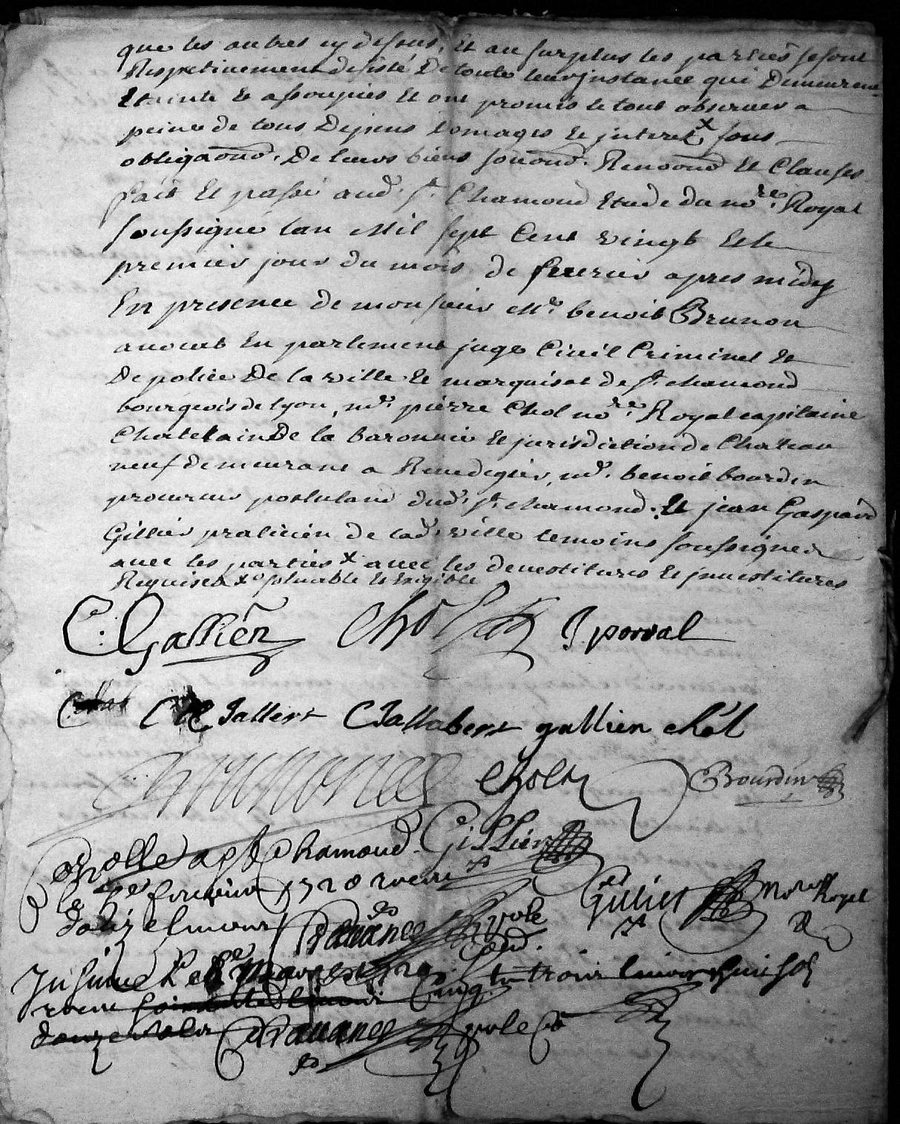 que les autres cy desous, Et au surplus les parties se sont
Respetivement desisté De toute leur jnstance qui Demeurent
Eteinte Et assoupies Et ont promis le tout observer a
peine de tous Depens Domages Et jnteret x sous
obligaond. De leurs biens Renoond Et Clauses
fait Et passé aud. st. Chamond Etude du nore. Royal
soussigné lan Mil sept Cent vingt Et le
premier jour du mois de feuvrier apres midy
En presence de monsieur Mre. benoit Brunon
avocat En parlement juge Civil Criminel Et
De police De la ville Et marquisat de st. chamond
bourgeois de Lyon, mre. pierre Chol nore. Royal capitaine
Chatelain De la baronnie Et jurisdiction de Chateau
neuf demeurant a Rivedegier, mre. benoit bourdin
procureur postuland dud. st. chamond. Et jean Gaspard
Gillier praticien de lad. ville temoins soussignez
avec les parties x avec les devestitures Et jnvestitures
Requises x Et Exigible
C: Gallien Chol J porral
C Jallabert gallien chol
Chol Bourdin
Controllé a st. Chamond Gillier
le fevrier 1720 receu
douze livres Ravance Gillier Nore Royal
Jnsinué Le Mars 1720 Cinq trois livres huit sols
receu
Ravance